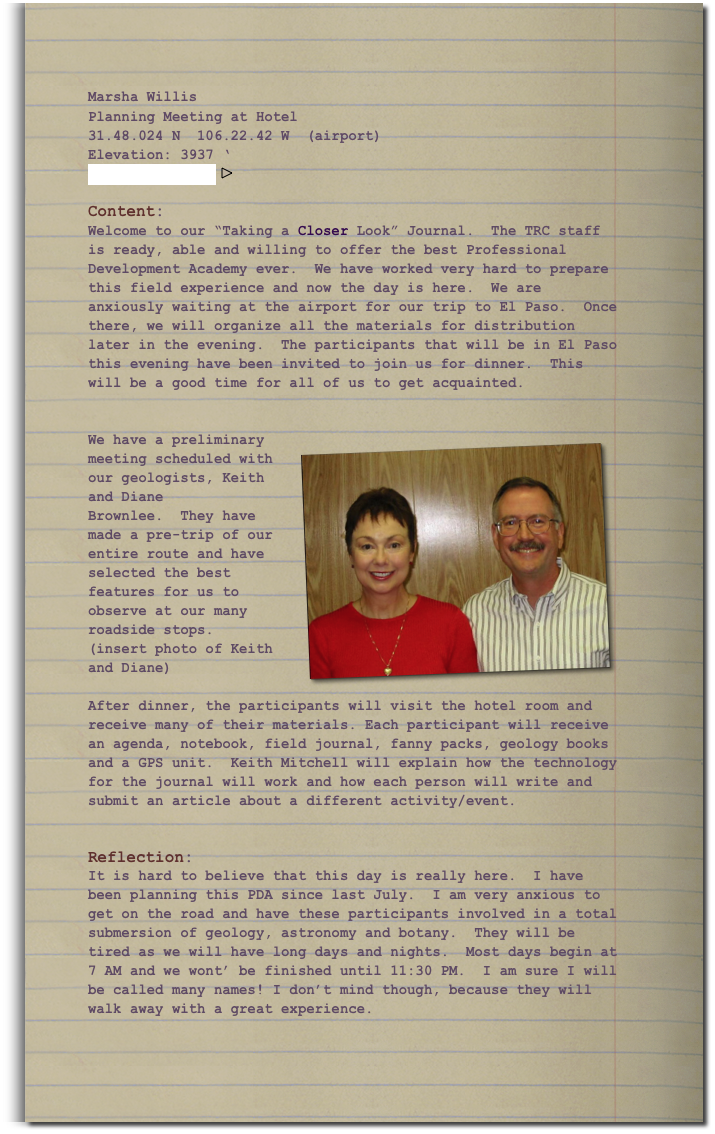 Marsha Willis
Planning Meeting at Hotel
31.48.024 N  106.22.42 W  (airport)
Elevation: 3937 ‘
Content:
Welcome to our “Taking a Closer Look” Journal.  The TRC staff
is ready, able and willing to offer the best Professional
Development Academy ever.  We have worked very hard to prepare
this field experience and now the day is here.  We are
anxiously waiting at the airport for our trip to El Paso.  Once
there, we will organize all the materials for distribution
later in the evening.  The participants that will be in El Paso
this evening have been invited to join us for dinner.  This
will be a good time for all of us to get acquainted.
We have a preliminary
meeting scheduled with
our geologists, Keith
and Diane
Brownlee.  They have
made a pre-trip of our
entire route and have
selected the best
features for us to
observe at our many
roadside stops.
(insert photo of Keith
and Diane)
After dinner, the participants will visit the hotel room and
receive many of their materials. Each participant will receive
an agenda, notebook, field journal, fanny packs, geology books
and a GPS unit.  Keith Mitchell will explain how the technology
for the journal will work and how each person will write and
submit an article about a different activity/event.
Reflection:
It is hard to believe that this day is really here.  I have
been planning this PDA since last July.  I am very anxious to
get on the road and have these participants involved in a total
submersion of geology, astronomy and botany.  They will be
tired as we will have long days and nights.  Most days begin at
7 AM and we wont’ be finished until 11:30 PM.  I am sure I will
be called many names! I don’t mind though, because they will
walk away with a great experience.